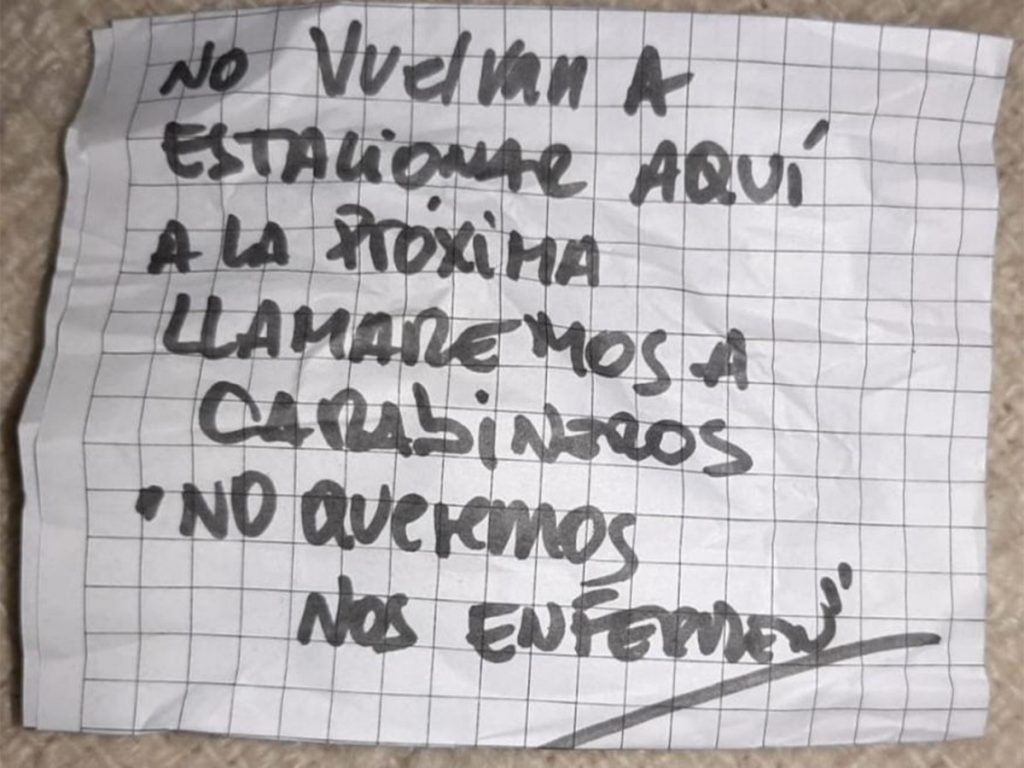 NO Vuelvan A
ESTACIONAR AQUÍ
A LA PRÓXIMA
LLAMAREMOS A
CARABINEROS
"NO QUEREMOS
NOS ENFERMEN"